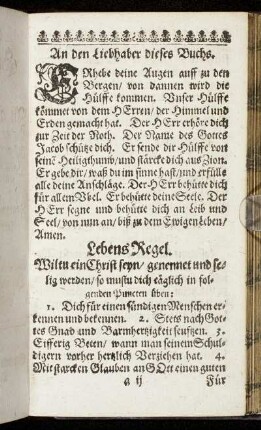 An den Liebhaber dieses Buchs.
ERhebe deine Augen auff zu den
Bergen/ von dannen wird die
Hülffe kommen. Unser Hülffe
kömmet von dem HErren/ der Himmel und
Erden gemacht hat. Der HErr erhöre dich
zur Zeit der Noth. Der Name des Gottes
Jacob schütze dich. Er sende dir Hülffe von
seinē Heiligthumb/ und stärcke dich aus Zion.
Er gebe dir/ waß du im sinne hast/ und erfülle
alle deine Anschläge. Der HErr behütte dich
für allem Vbel. Er behütte deine Seele. Der
HErr segne und behütte dich an Leib und
Seel/ von nun an/ biß zu dem Ewigen Leben/
Amen.
Lebens Regel.
Wiltu ein Christ seyn/ genennet und se-
lig werden/ so mustu dich täglich in fol-
genden Puncten üben:
1. Dich für einen sündigen Menschen er-
kennen und bekennen. 2. Stets nach Got-
tes Gnad und Barmhertzigkeit seufftzen. 3.
Eifferig Beten/ wann man seinem Schul-
digern vorher hertzlich Verziehen hat. 4.
Mit starcken Glauben an GOtt einen guten
a ij Für